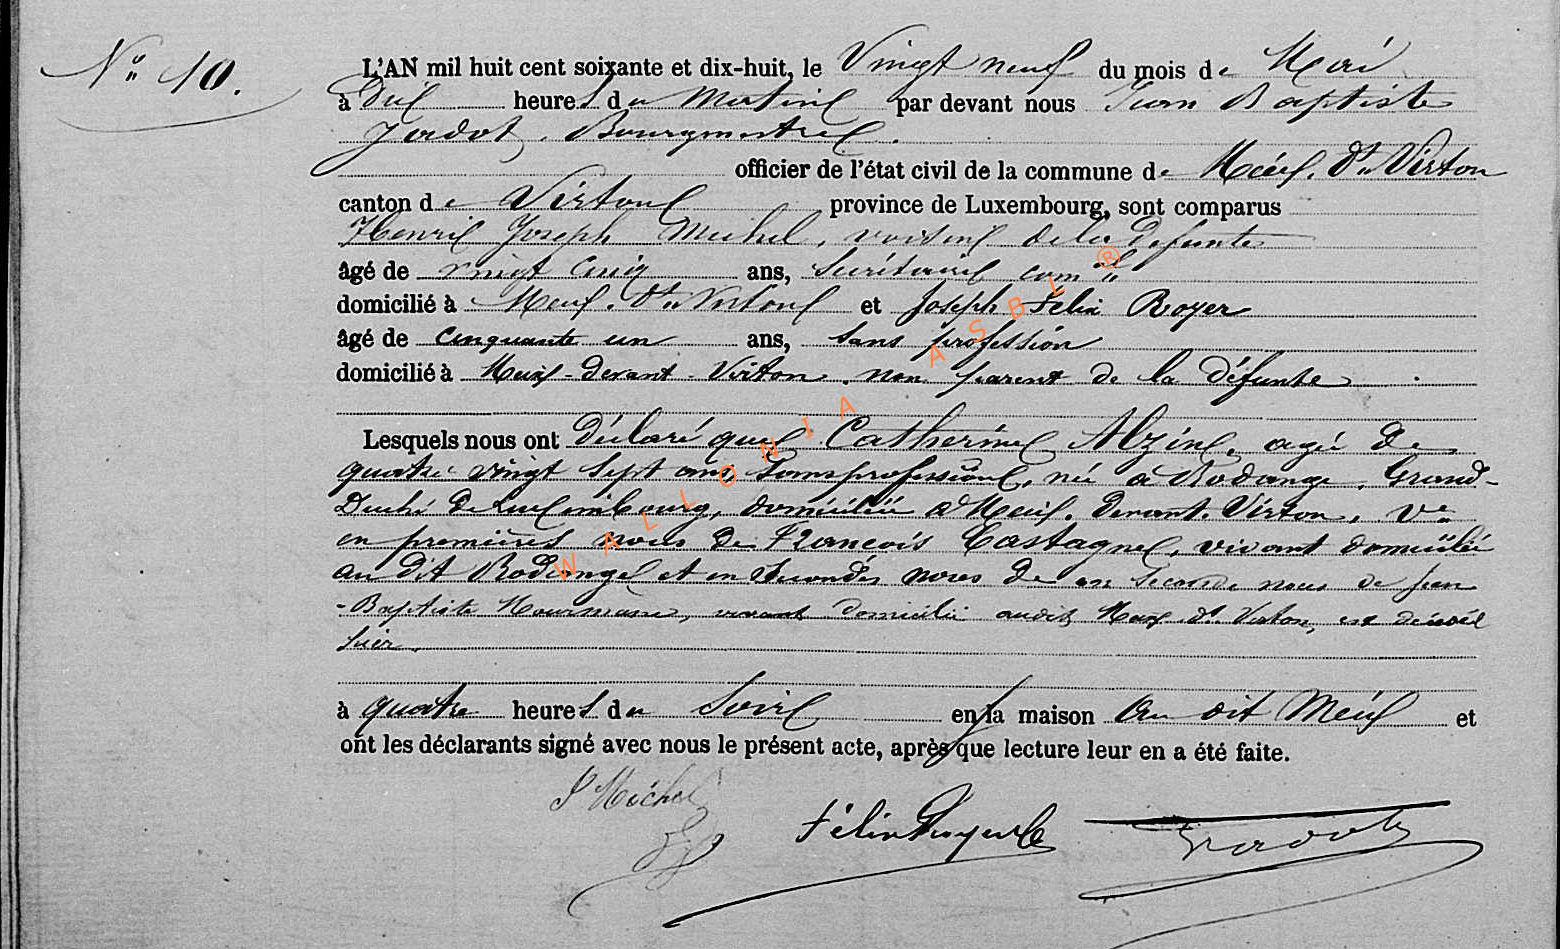 N° 10.
L'AN mil huit cent soixante et dix-huit, le Vingt neuf du mois de Mai
à Dix heures du Matin par devant nous Jean Baptiste
Jadot, Bourgmestre.
officier de l'état civil de la commune de Meix. Dt Virton
canton de Virton province de Luxembourg, sont comparus
Henri Joseph Michel, voisin de la Défunte
âgé de vingt cinq ans, Secrétaire com
domicilié à Meix. Dt Virton et Joseph Felix Royer
âgé de cinquante un ans, sans profession
domicilié à Meix-devant-Virton. non parent de la défunte.
Lesquels nous ont déclaré que Catherine Alzin, agée de
quatre vingt sept ans, sans profession, née à Rodange, Grand-
Duché de Luxembourg, domiciliée à Meix. Devant. Virton, Ve
en premières noces de François Castagne, vivant domicilié
au dit Rodange et en secondes noces de en seconde noces de Jean
-Baptiste vivant domicilié audit Meix Dt Virton, est décédée
hier.
à quatre heures du Soir en sa maison Au dit Meix et
ont les déclarants signé avec nous le présent acte, après que lecture leur en a été faite.
J Michel
Félix Royer
Jadot
WALLONIA ASBL ®